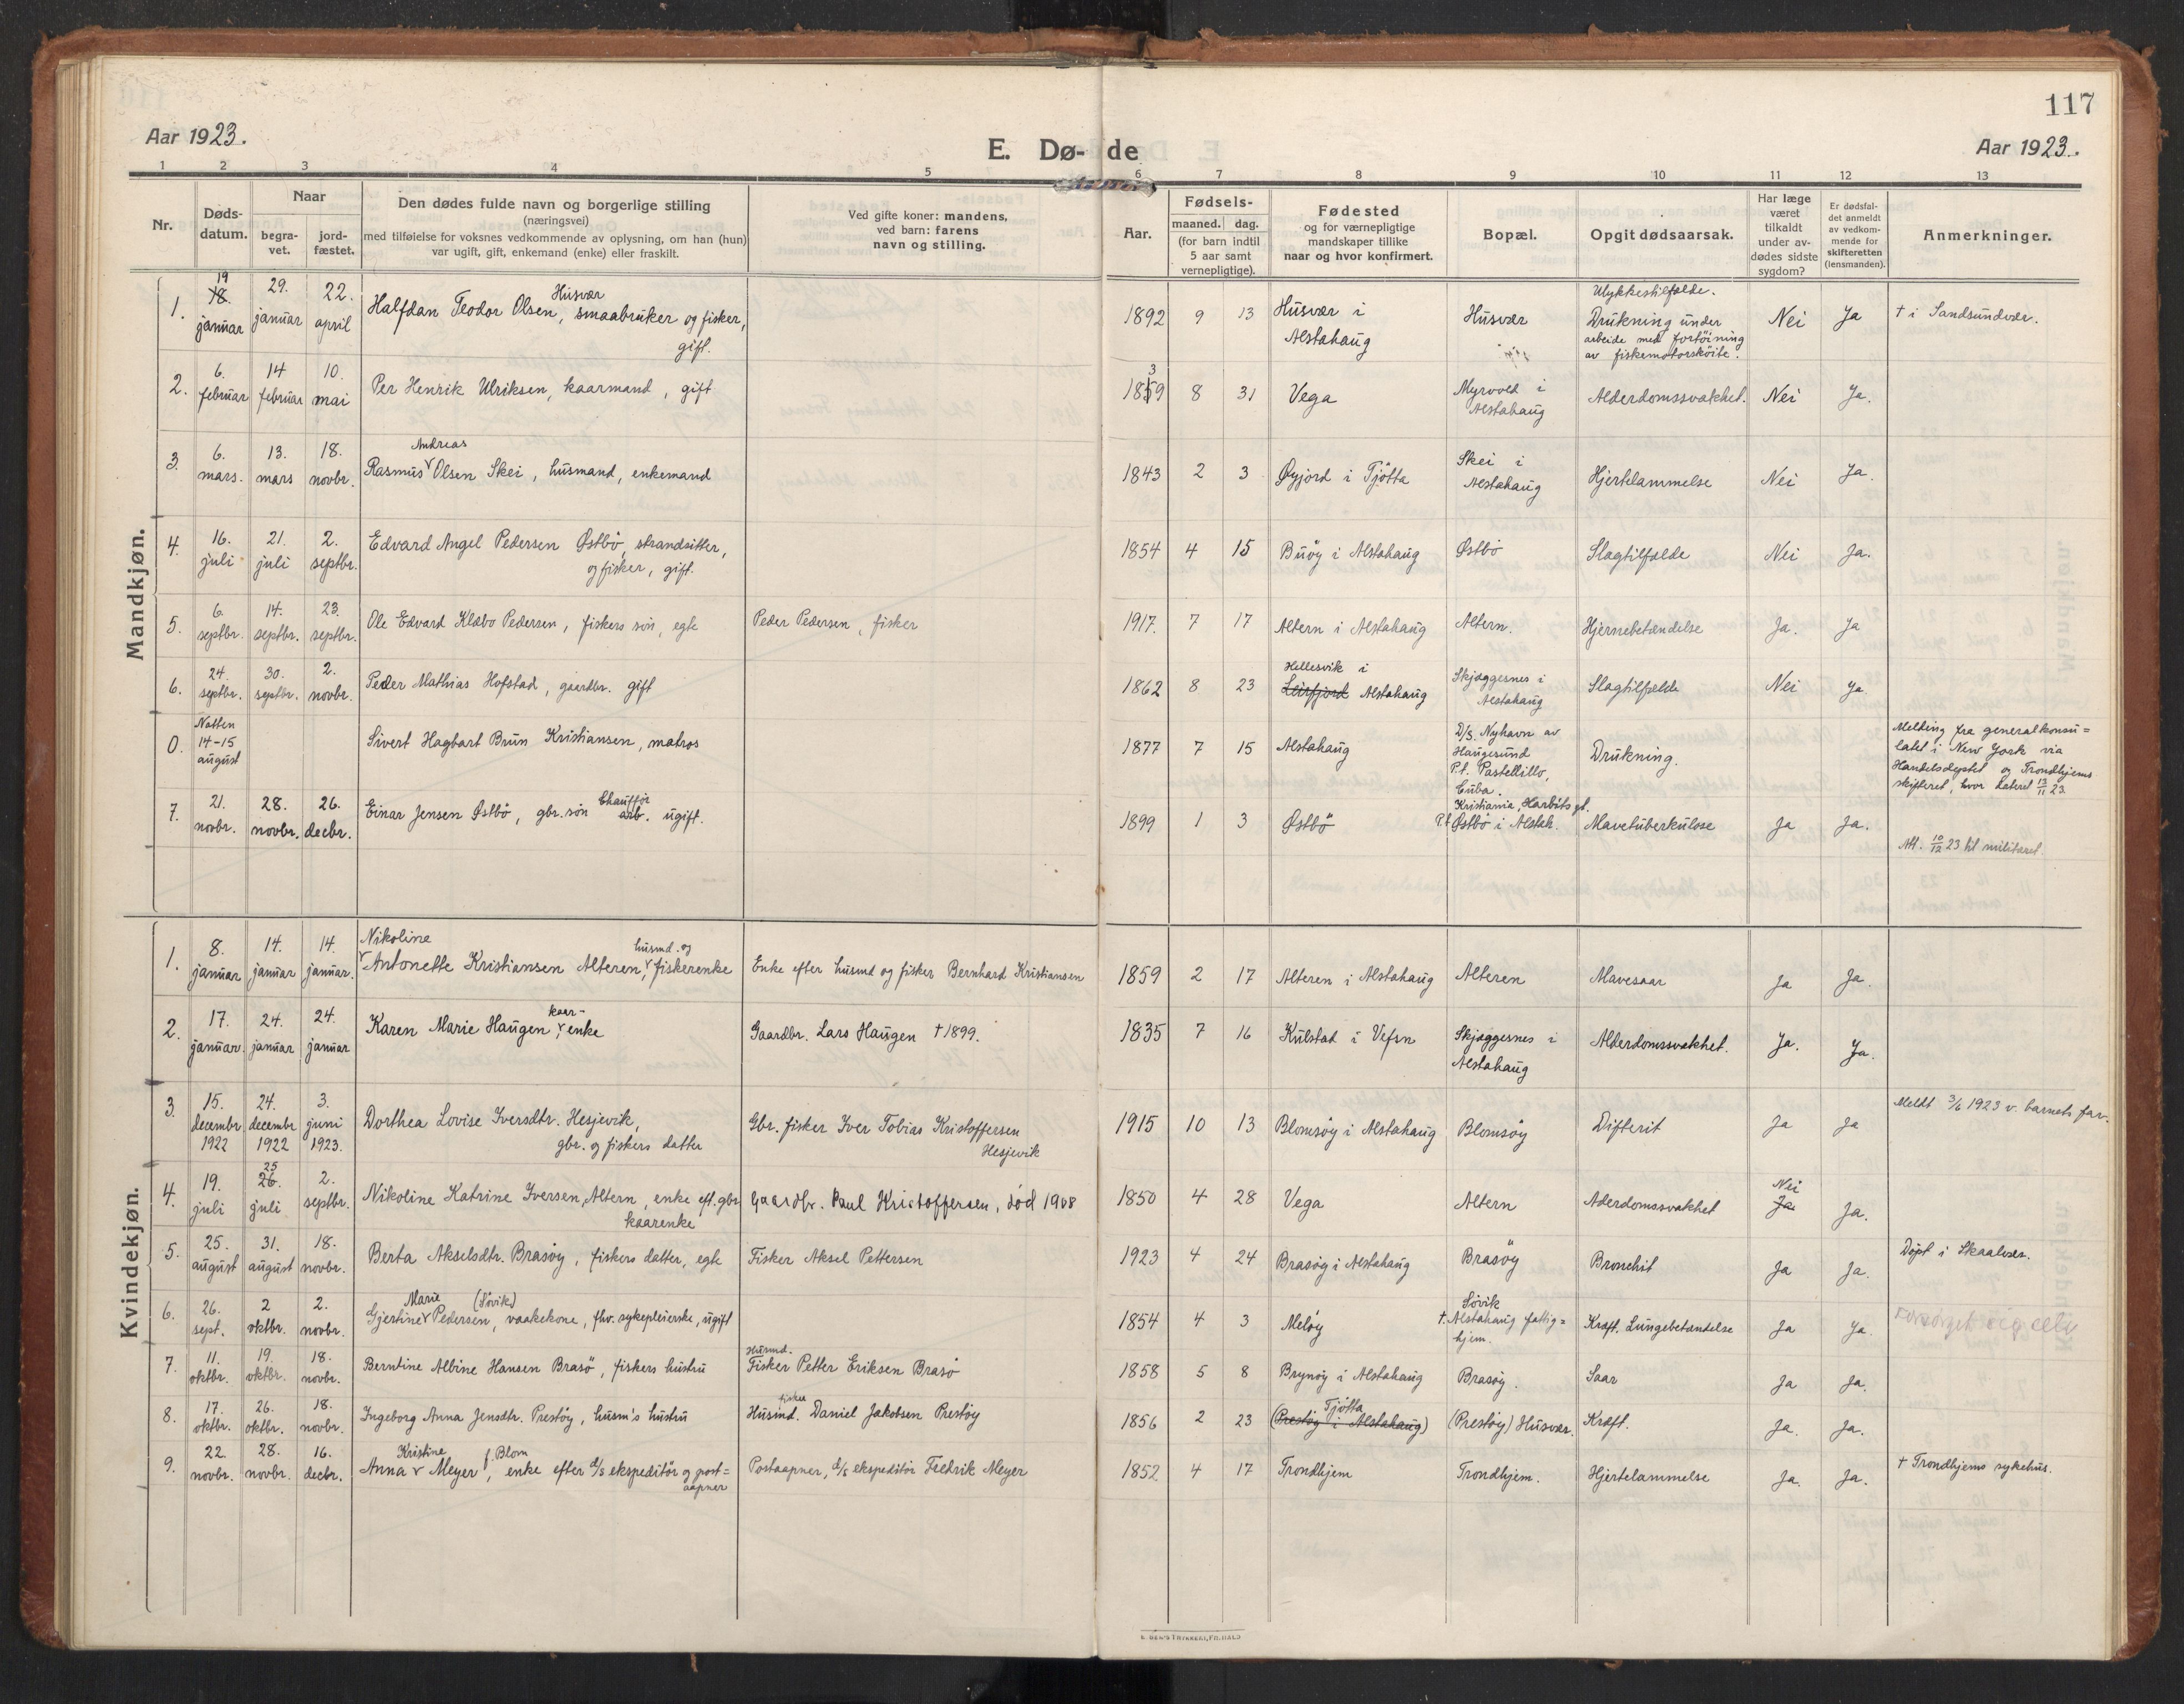 117
Aar 1923.
E. Dø- de
Aar 1923.
1 2 3 4 5 6 7 8 9 10 11 12 13
Nr.
Døds-
datum.
Naar
begra-
vet.
jord-
fæstet.
Den dødes fulde navn og borgerlige stilling
(næringsvei)
med tilføielse for voksnes vedkommende av oplysning, om han (hun)
var ugift, gift, enkemand (enke) eller fraskilt.
Ved gifte koner: mandens,
ved barn: farens
navn og stilling.
Aar.
Fødsels-
maaned. dag.
(for barn indtil
5 aar samt
vernepligtige).
Fødested
og for værnepligtige
mandskaper tillike
naar og hvor konfirmert.
Bopæl.
Opgit dødsaarsak.
Har læge
været
tilkaldt
under av-
dødes sidste
sygdom?
Er dødsfal-
det anmeldt
av vedkom-
mende for
skifteretten
(lensmanden).
Anmerkninger.
Mandkjøn.
1.
19
18.
januar
29.
januar
22.
april
Husvær
Halfdan Teodor Olsen, smaabruker og fisker,
gift.
1892 9 13
Husvær i
Alstahaug
Husvær
Ulykkestilfælde.
Drukning under
arbeide med fortöining
av fiskemotorskøite.
Nei Ja
† i Sandsundvær.
2.
6.
februar
14
februar
10.
mai
Per Henrik Ulriksen, kaarmand, gift
3
1859 8 31
Vega
Myrvold i
Alstahaug
Alderdomssvakhet.
Nei Ja.
3.
6.
mars.
13.
mars
18.
novbr.
Andreas
Rasmus Olsen Skei, husmand, enkemand
1843 2 3
Øyjord i Tjötta
Skei i
Alstahaug
Hjertelammelse
Nei Ja.
4.
16.
juli
21.
juli
2.
septbr.
Edvard Angel Pedersen Østbö, strandsitter,
og fisker, gift.
1854 4 15
Buöy i Alstahaug
Østbö
Slagtilfælde
Nei Ja.
5.
6.
septbr.
14.
septbr.
23.
septbr.
Ole Edvard Klæbo Pedersen, fiskers sön, egte
Peder Pedersen, fisker
1917. 7 17
Altern i Alstahaug
Altern.
Hjernebetændelse
Ja. Ja
6.
24.
septbr.
30.
septbr.
2.
novbr.
Peder Mathias Hofstad, gaardbr. gift
1862 8 23
Hellesvik i
Leirfjord Alstahaug
Skjæggesnes i
Alstahaug
Slagtilfælde
Nei Ja
0.
Natten
14-15
august
Sivert Hagbart Brun Kristiansen, matros
1877 7 15
Alstahaug
D/S. Nyhavn av
Haugesund
P.t. Pastelillo,
Cuba.
Drukning.
Melding fra generalkonsu=
latet i New York via
Handelsdeptet og Trondhjems
skifteret, hvor dateret 13/11 23.
7.
21.
novbr.
28.
novbr.
26.
decbr.
Chaufför
Einar Jensen Østbö, gbr. sön arb. ugift.
1899 1 3
Østbö
Kristiania, Harbitsgt.
P.t. Østbö i Alstah.
Mavetuberkulose
Ja Ja.
Att. 10/12 23 til militæret.
Kvindekjøn.
1.
8.
januar
14.
januar
14.
januar.
Nikoline
husmd. og
Antonette Kristiansen Alteren, fiskerenke
Enke efter husmd og fisker Bernhard Kristiansen
1859 2 17
Alteren i Alstahaug
Alteren
Mavesaar
Ja Ja.
2.
17.
januar.
24.
januar
24.
januar
kaar-
Karen Marie Haugen, enke
Gaardbr. Lars Haugen † 1899.
1835 7 16
Kulstad i Vefsn
Skjæggesnes i
Alstahaug
Alderdomssvakhet.
Ja. Ja.
3.
15.
decembr
1922
24.
decembr
1922
3.
juni
1923.
Dorthea Lovise Iversdtr. Hesjevik,
gbr. og fiskers datter
Gbr. fisker Iver Tobias Kristoffersen
Hesjevik
1915 10 13
Blomsöy i Alstahaug
Blomsöy
Difterit
Ja Ja
Meldt 3/6 1923 v. barnets far.
4.
19.
juli
25
26.
juli
2.
septbr.
Nikoline Katrine Iversen, Altern, enke eft. gbr
kaarenke
Gaardbr. Paul Kristoffersen, død 1908
1850 4 28
Vega
Altern
Aderdomssvakhet
Nei
Ja Ja.
5.
25.
august
31.
august
18.
novbr.
Berta Akselsdtr. Brasöy, fiskers datter, egte
Fisker Aksel Pettersen
1923 4 24
Brasöy i Alstahaug
Brasöy
Bronchit
Ja Ja.
Döpt i Skaalvær.
6.
26.
sept.
2
oktbr.
2.
novbr.
Marie (Sövik)
Gjertine Pedersen, vaakekone, fhv. sykepleierske, ugift
1854 4 3
Melöy
Sövik
t. Alstahaug fattig=
hjem.
Kræft. Lungebetændelse
Ja Ja.
Forsörget sig selv
7.
11.
oktbr.
19.
oktbr.
18.
novbr.
Berntine Albine Hansen Brasö, fiskers hustru
Husmd.
Fisker Petter Eriksen Brasö
1858 5 8
Brynöy i Alstahaug
Brasöy.
Saar
Ja Ja.
8.
17.
oktbr.
26.
oktbr.
18.
novbr.
Ingeborg Anna Jensdtr. Prestöy, husm's hustru
fisker
Husmd. Daniel Jakobsen Prestöy
1856 2 23
Tjötta
(Prestöy i Alstahaug)
(Prestöy) Husvær.
Kræft.
Ja. Ja.
9.
22.
novbr.
28.
novbr.
16.
decbr.
Kristine f. Blom
Anna Meyer, enke efter d/s ekspeditör og post=
aapner
Postaapner, d/s ekspeditör Fredrik Meyer
1852 4 17
Trondhjem
Trondhjem.
Hjertelammelse
Ja. Ja.
† Trondhjems sykehus.